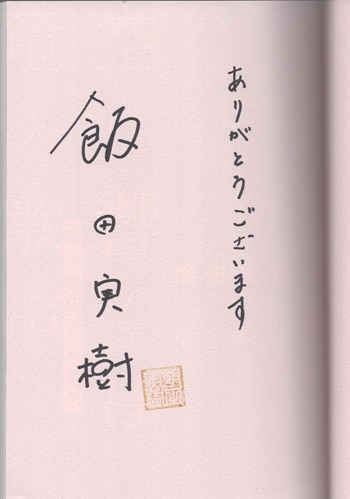 ありがとうございます
飯田実樹